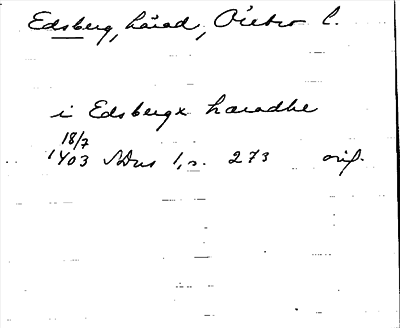 Edsberg, härad, Örebro l.
i Edsbergx haradhe
18/7
1403 SDns 1, s. 273 orig.